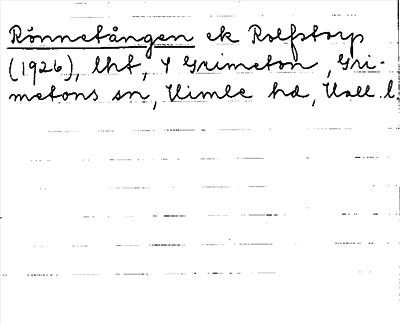 Rönnetången ek Rolfstorp
(1926), lht, 4 Grimeton, Gri-
metons sn, Himle hd, Hall. l.